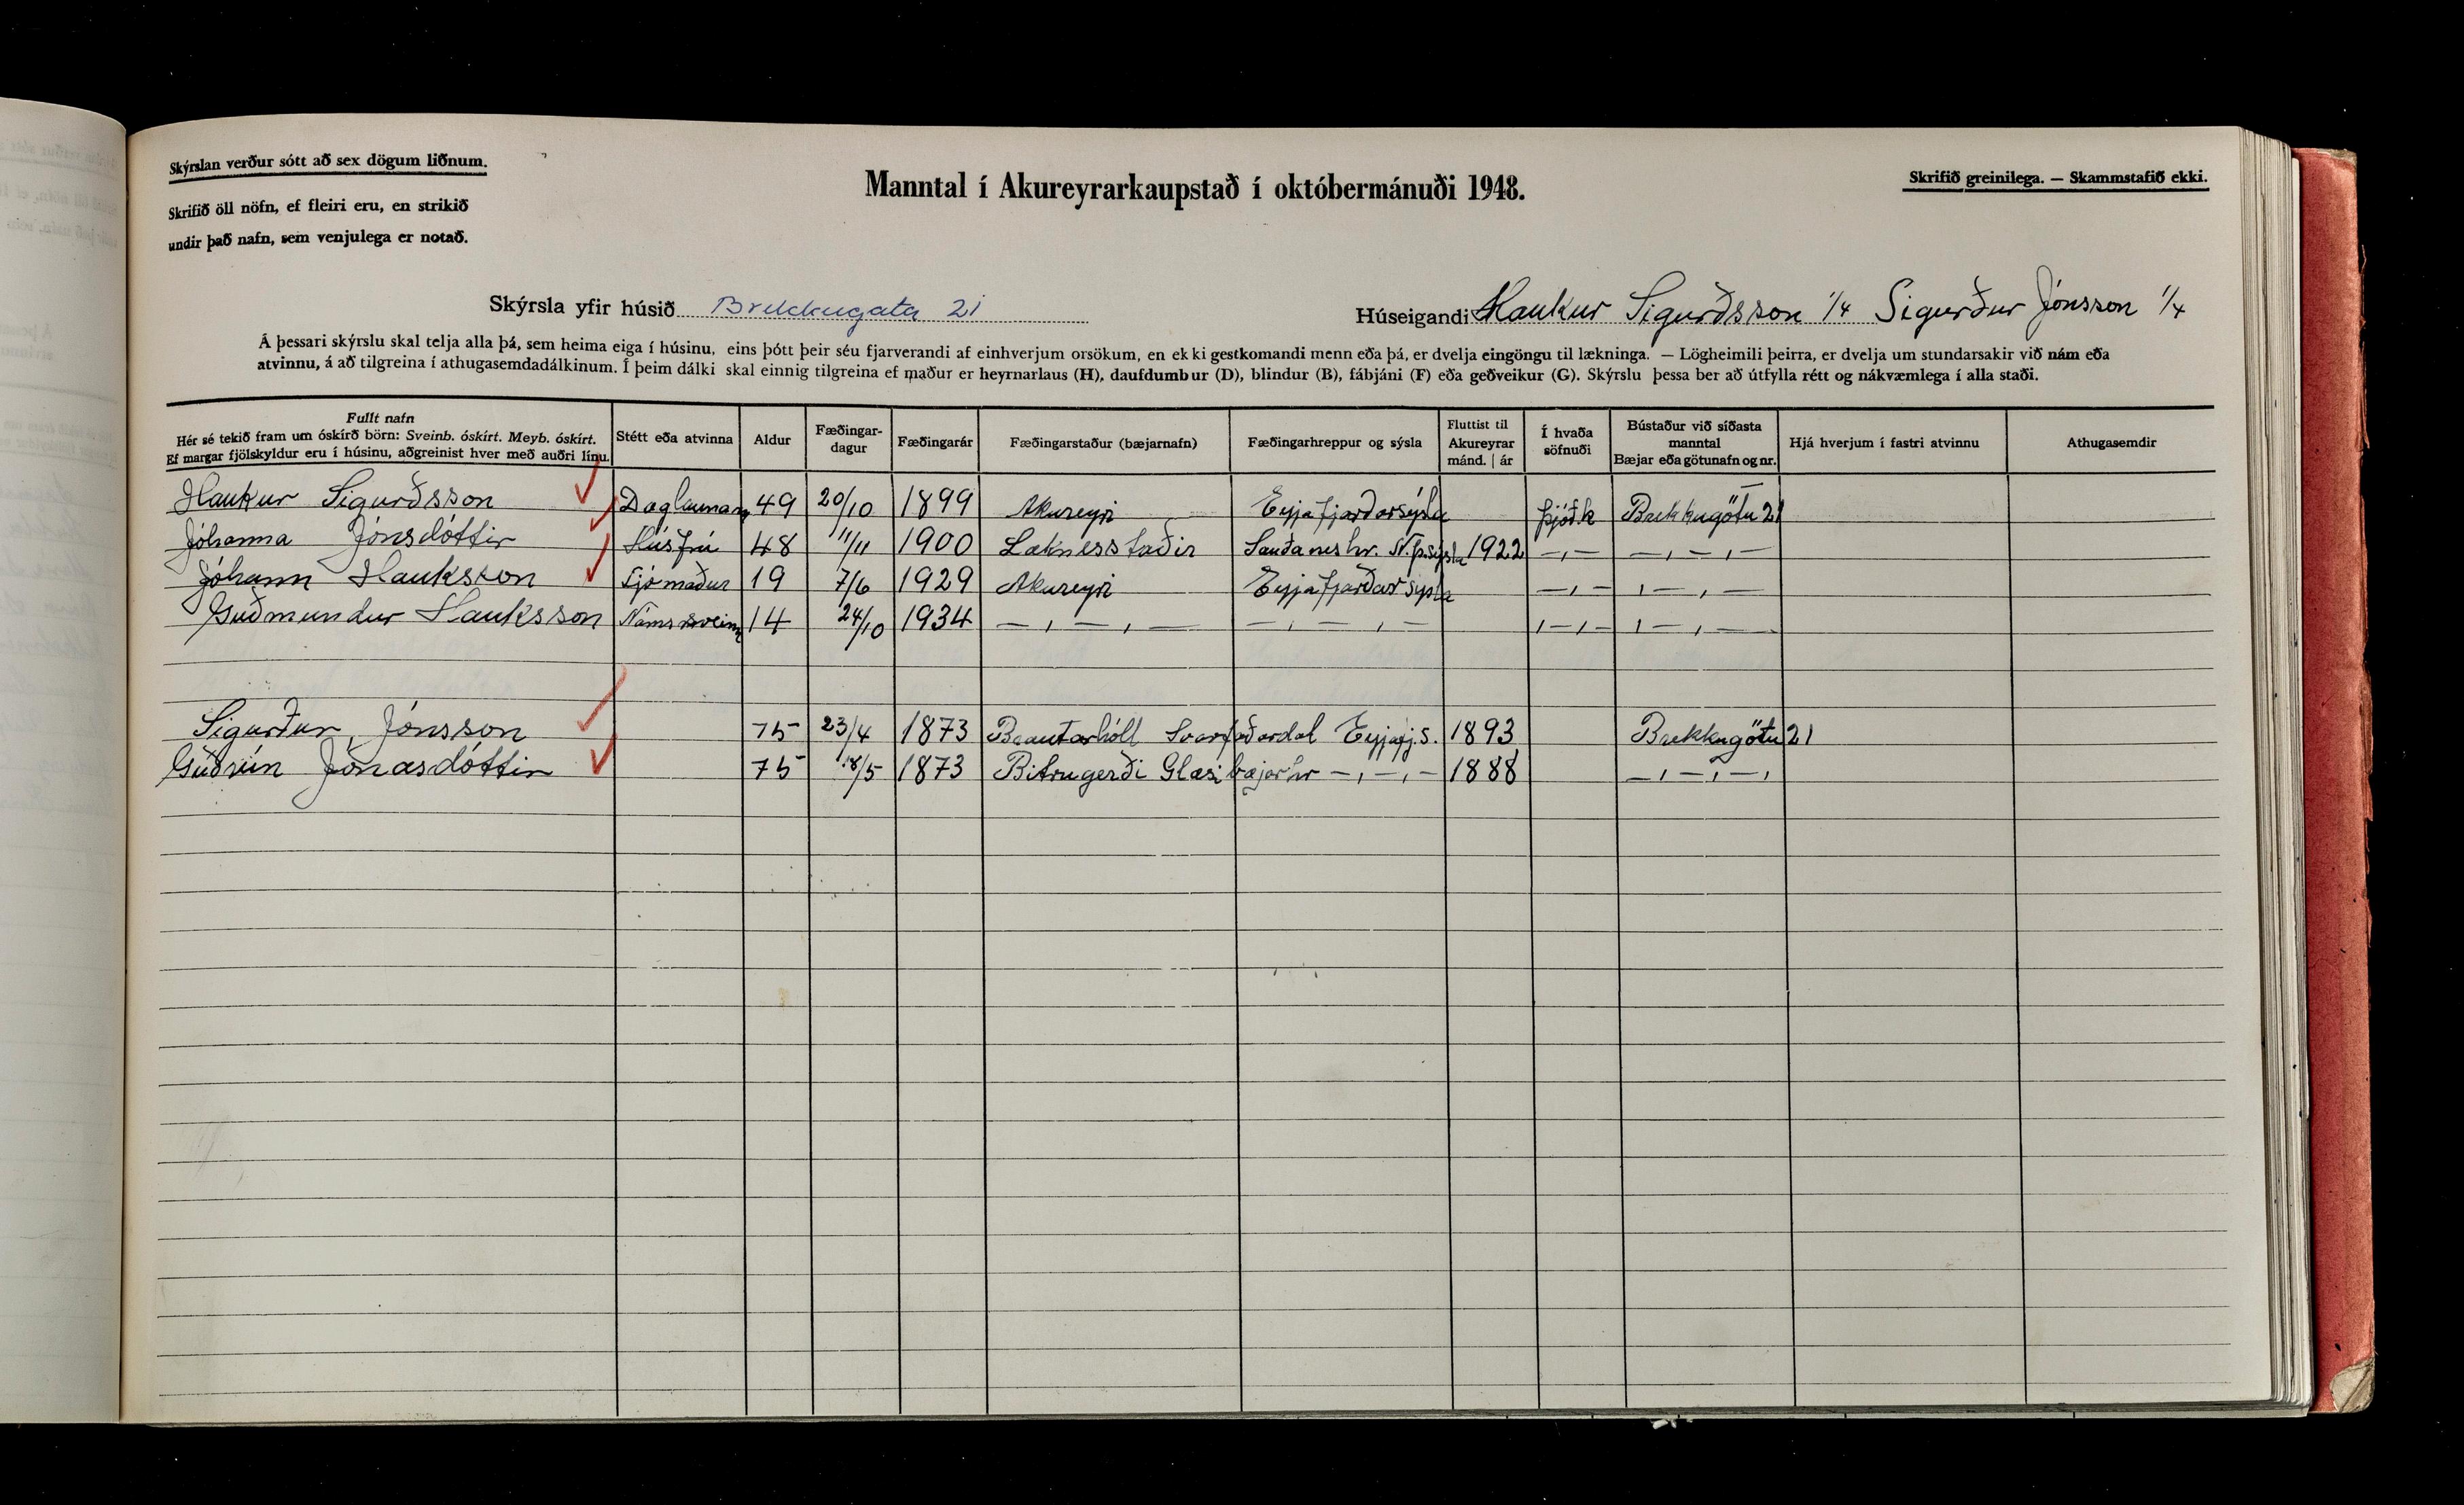 Skýrslan verður sótt að sex dögum liðnum.
Skrifið öll nöfn, ef fleiri eru, en strikið
undir það nafn, sem venjulega er notað.
Manntal í Akureyrarkaupstað í októbermánuði 1948.
Skrifið greinilega. — Skammstafið ekki.
Skýrsla yfir húsið Brekkugata 21
Húseigandi Haukur Sigurðsson 1/4 Sigurður Jónsson 1/4
Á þessari skýrslu skal telja alla þá, sem heima eiga í húsinu, eins þótt þeir séu fjarverandi af einhverjum orsökum, en ekki gestkomandi menn eða þá, er dvelja eingöngu til lækninga. — Lögheimili þeirra, er dvelja um stundarsakir við nám eða
atvinnu, á að tilgreina í athugasemdadálkinum. Í þeim dálki skal einnig tilgreina ef maður er heyrnarlaus (H), daufdumbur (D), blindur (B), fábjáni (F) eða geðveikur (G). Skýrslu þessa ber að útfylla rétt og nákvæmlega í alla staði.
Fullt nafn
Hér sé tekið fram um óskírð börn: Sveinb. óskírt. Meyb. óskírt.
Ef margar fjölskyldur eru í húsinu, aðgreinist hver með auðri línu.
Stétt eða atvinna
Aldur
Fæðingar-
dagur
Fæðingarár
Fæðingarstaður (bæjarnafn)
Fæðingarhreppur og sýsla
Fluttist til
Akureyrar
mánd. | ár
Í hvaða
söfnuði
Bústaður við síðasta
manntal
Bæjar eða götunafn og nr.
Hjá hverjum í fastri atvinnu
Athugasemdir
Haukur Sigurðsson Daglaunam 49 20/10 1899 Akureyri Eyjafjarðarsýsla Þjóðk Brekkugötu 21
Jóhanna Jónsdóttir Húsfrú 48 11/11 1900 Læknesstaðir Sauðaneshr. N.þ.sýsla 1922 —,— —,—,—
Jóhann Hauksson Sjómaður 19 7/6 1929 Akureyri Eyjafjarðarsýsla —,— ,—,—
Guðmundur Hauksson Námssveinn 14 24/10 1934 —,—,— —,—,— ,—,— ,—,—
Sigurður Jónsson 75 23/4 1873 Brautarhóll Svarfaðardal Eyjafj.s. 1893 Brekkugötu 21
Guðrún Jónasdóttir 75 18/5 1873 Bitrugerði Glæsibæjarhr —,—,— 1888 —,—,—,